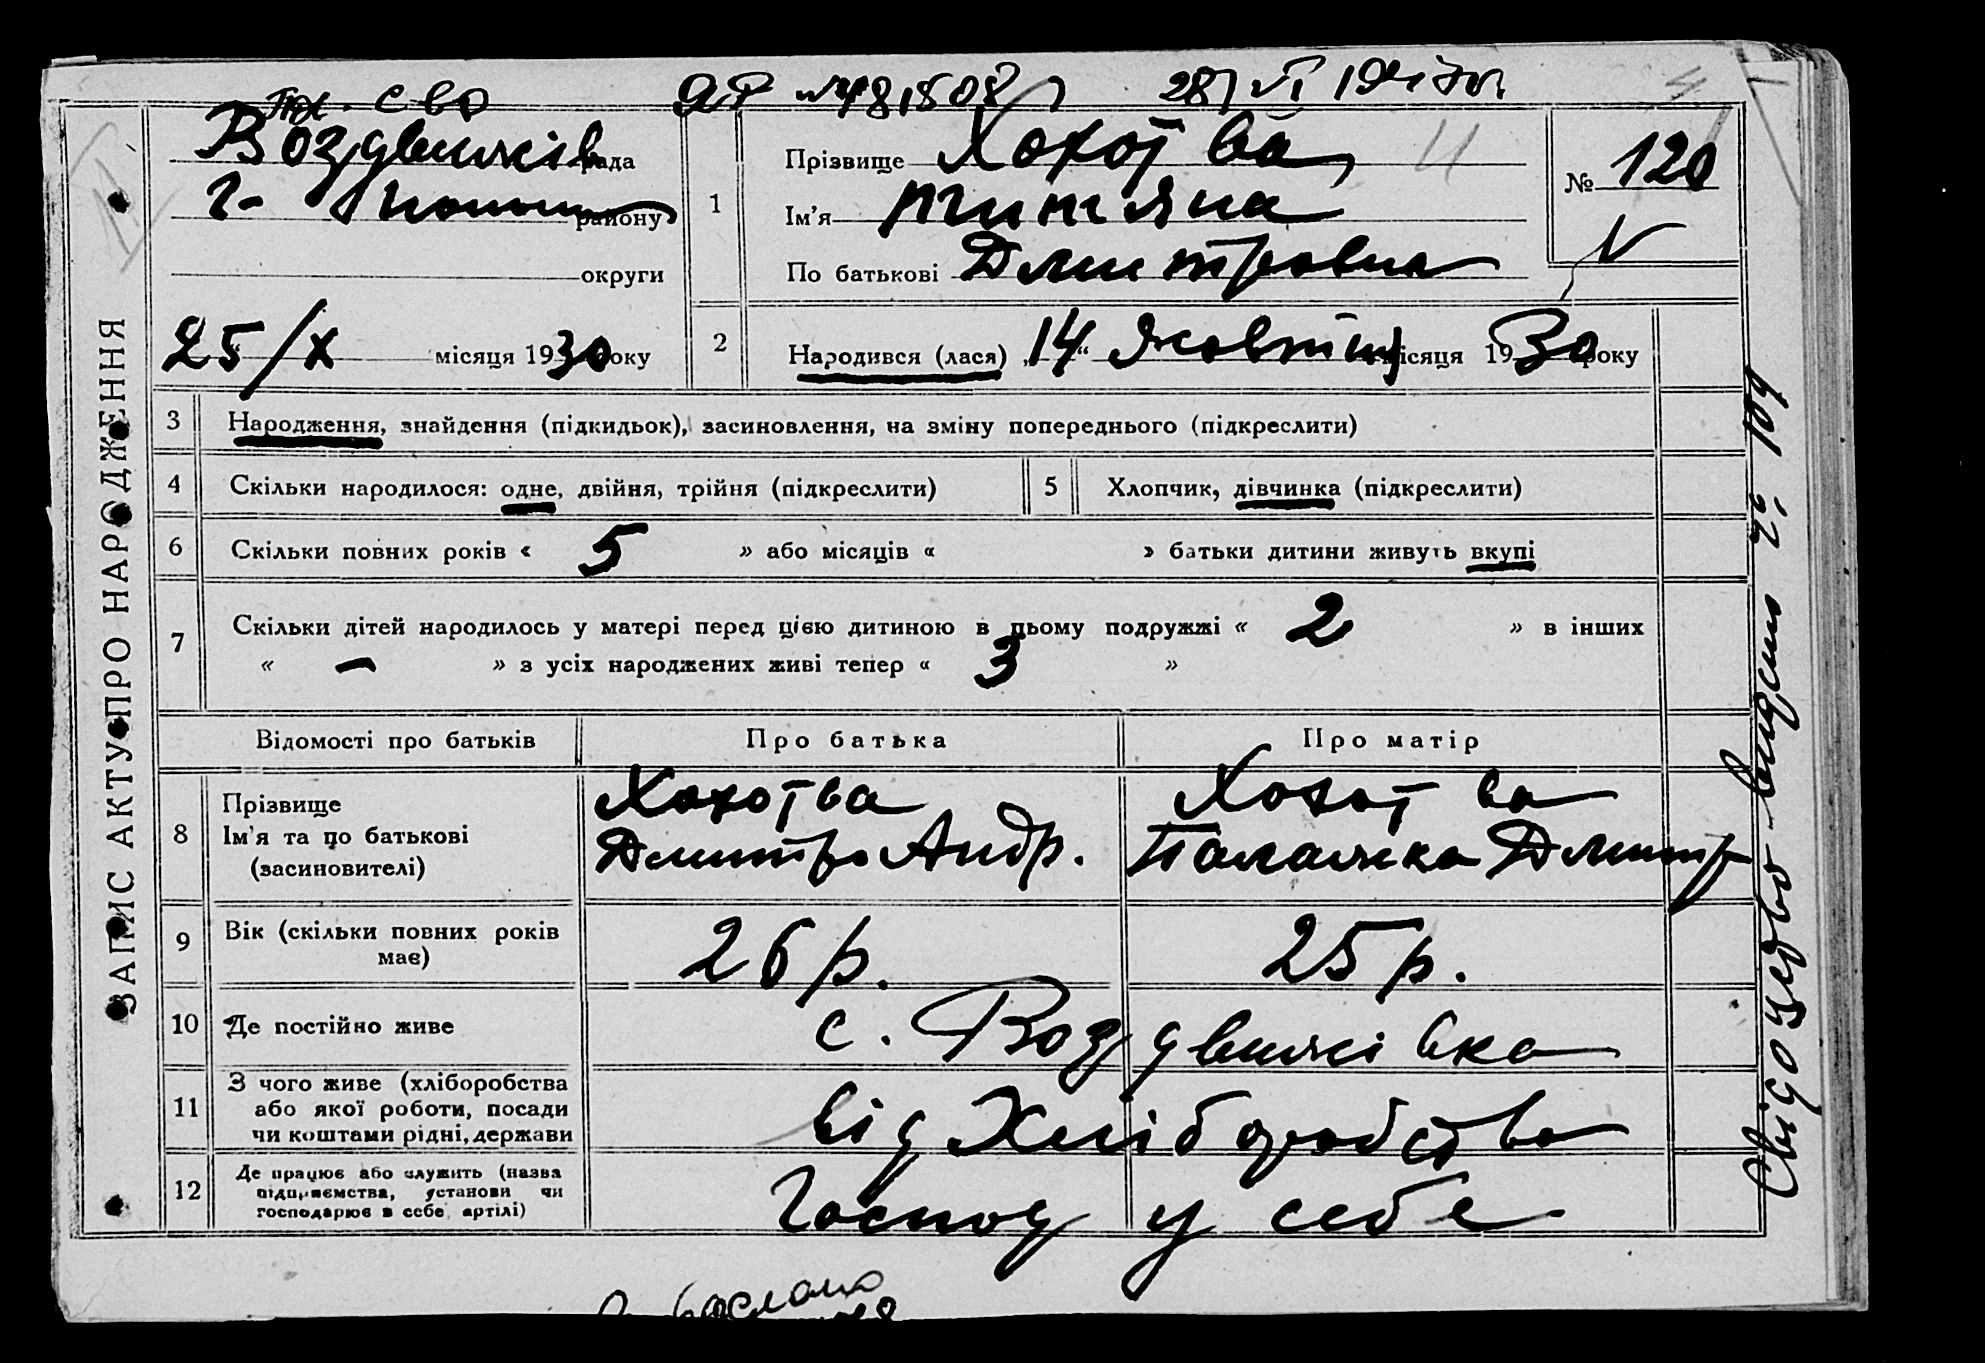 ЗАПИС АКТУ ПРО НАРОДЖЕННЯ
сво ЯР № 481508 28/VI 1947 г.
Воздвижків рада
району
округи
25/X місяця 1930 року
1 Прізвище Хохотва
Ім'я Титяна
По батькові Дмитровна
№ 120
2 Народився (лася) „14“ Жовтня місяця 1930 року
3 Народження, знайдення (підкидьок), засиновлення, на зміну попереднього (підкреслити)
4 Скільки народилося: одне, двійня, трійня (підкреслити)
5 Хлопчик, дівчинка (підкреслити)
6 Скільки повних років « 5 » або місяців « » батьки дитини живуть вкупі
7 Скільки дітей народилось у матері перед цією дитиною в цьому подружжі « 2 » в інших
« — » з усіх народжених живі тепер « 3 »
Відомості про батьків Про батька Про матір
8 Прізвище
Ім'я та по батькові
(засиновителі)
Хохотва
Дмитро Андр.
Хохотва
Палажка Дмитр
9 Вік (скільки повних років
має)
26 р. 25 р.
10 Де постійно живе с. Воздвижівка
11 З чого живе (хліборобства
або якої роботи, посади
чи коштами рідні, держави
від Хліборобства
12 Де працює або служить (назва
підприємства, установи чи
господарює в себе, артілі)
Господ у себе
Свідоцтво видано